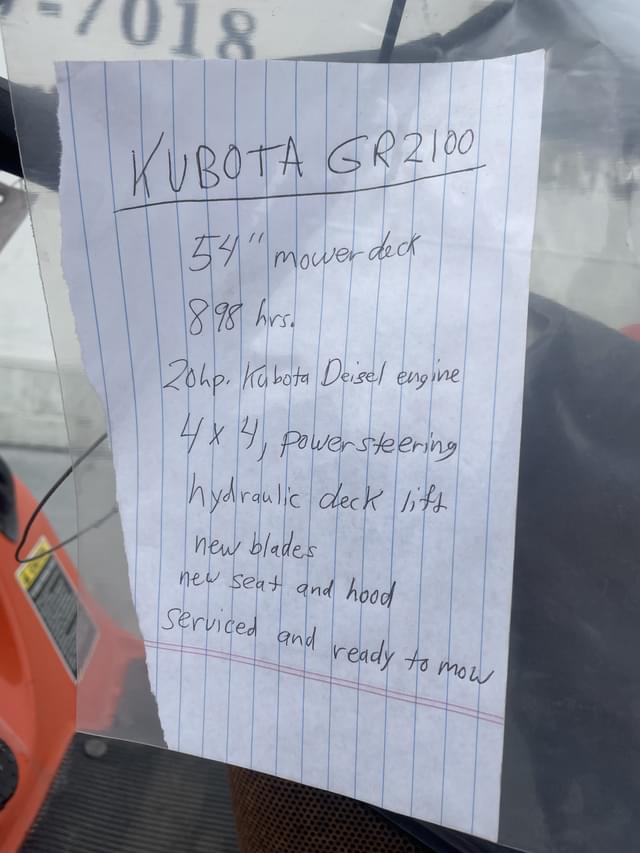 -7018
KUBOTA GR2100
54" mower deck
898 hrs.
20hp. Kubota Deisel engine
4x4, power steering
hydraulic deck lift
new blades
new seat and hood
serviced and ready to mow